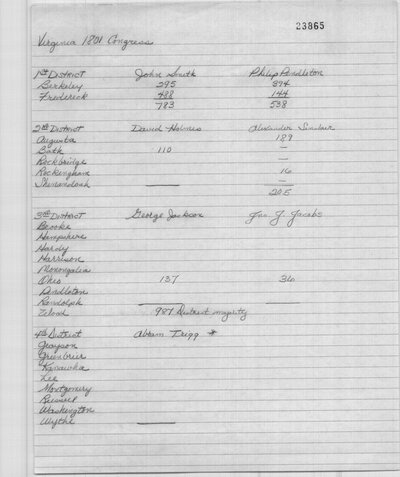 23865
Virginia 1801 Congress
1st District John Smith Philip Pendleton
Berkeley 295 394
Frederick 488 144
783 538
2nd District David Holmes Alexander Sinclair
Augusta 189
Bath 110 —
Rockbridge —
Rockingham 16
Shenandoah —
205
3rd District George Jackson Jno. J. Jacobs
Brooke
Hampshire
Hardy
Harrison
Monongalia
Ohio 137 36
Pendleton
Randolph
981 District majority
4th District Abram Trigg *
Grayson
Greenbrier
Kanawha
Lee
Montgomery
Russell
Washington
Wythe